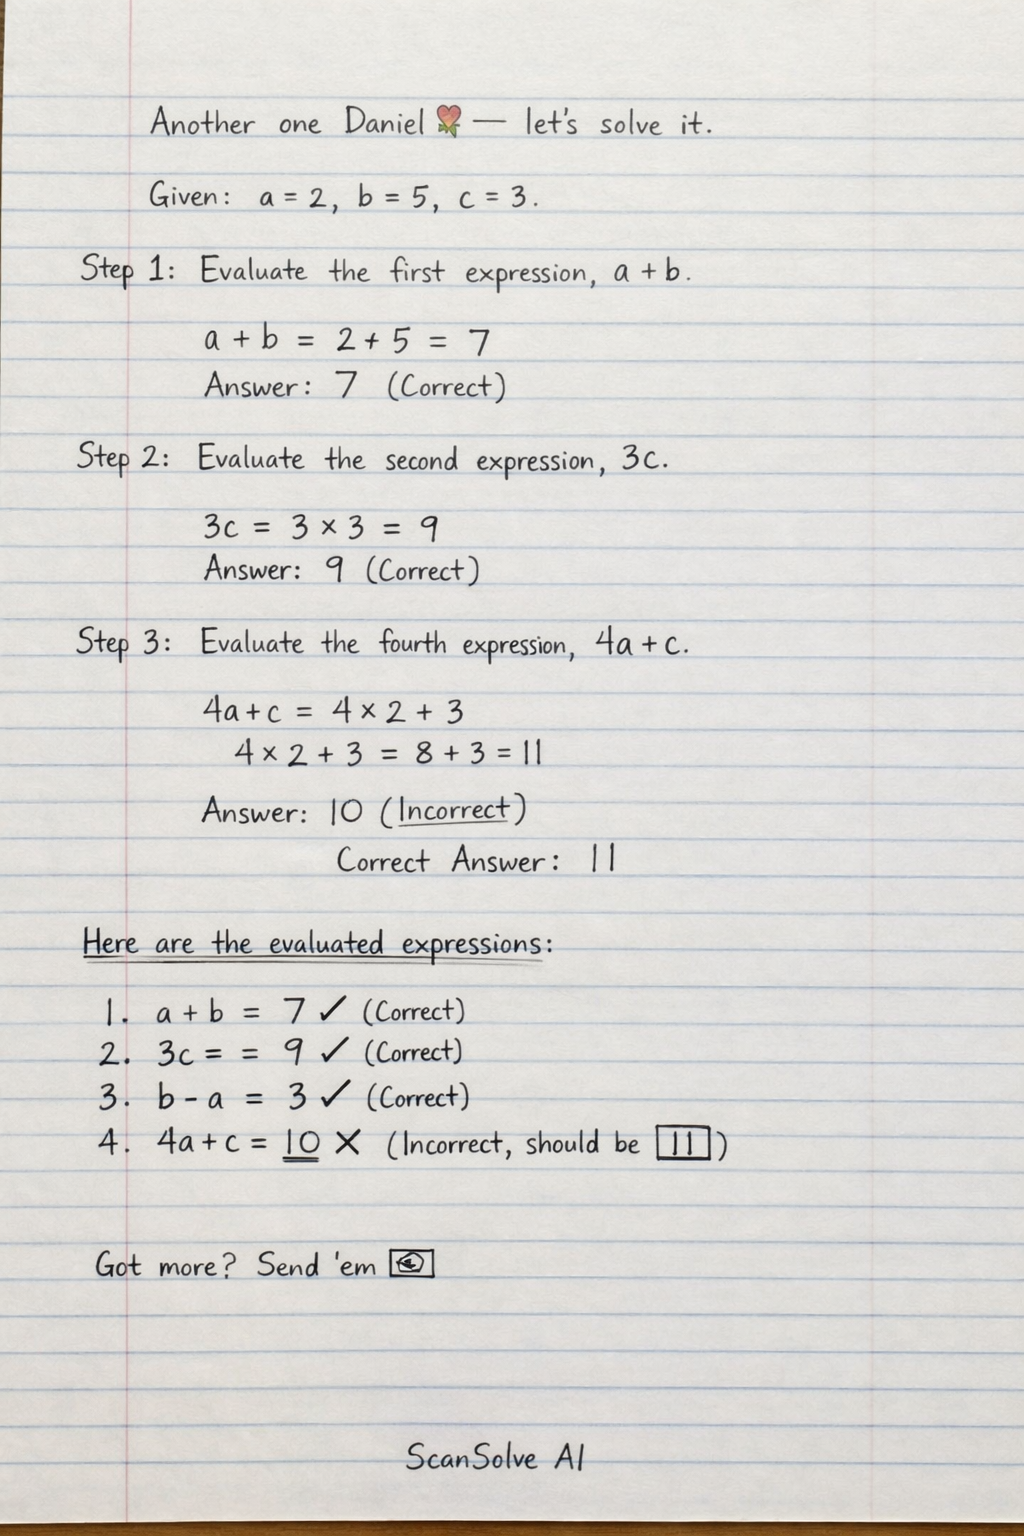 Another one Daniel🌹 — let's solve it.
Given: a = 2, b = 5, c = 3.
Step 1: Evaluate the first expression, a + b.
a + b = 2 + 5 = 7
Answer: 7 (Correct)
Step 2: Evaluate the second expression, 3c.
3c = 3 × 3 = 9
Answer: 9 (Correct)
Step 3: Evaluate the fourth expression, 4a + c.
4a + c = 4 × 2 + 3
4 × 2 + 3 = 8 + 3 = 11
Answer: 10 (Incorrect)
Correct Answer: 11
Here are the evaluated expressions:
1. a + b = 7 ✓ (Correct)
2. 3c = = 9 ✓ (Correct)
3. b - a = 3 ✓ (Correct)
4. 4a + c = 10 ✗ (Incorrect, should be 11)
Got more? Send 'em
ScanSolve AI